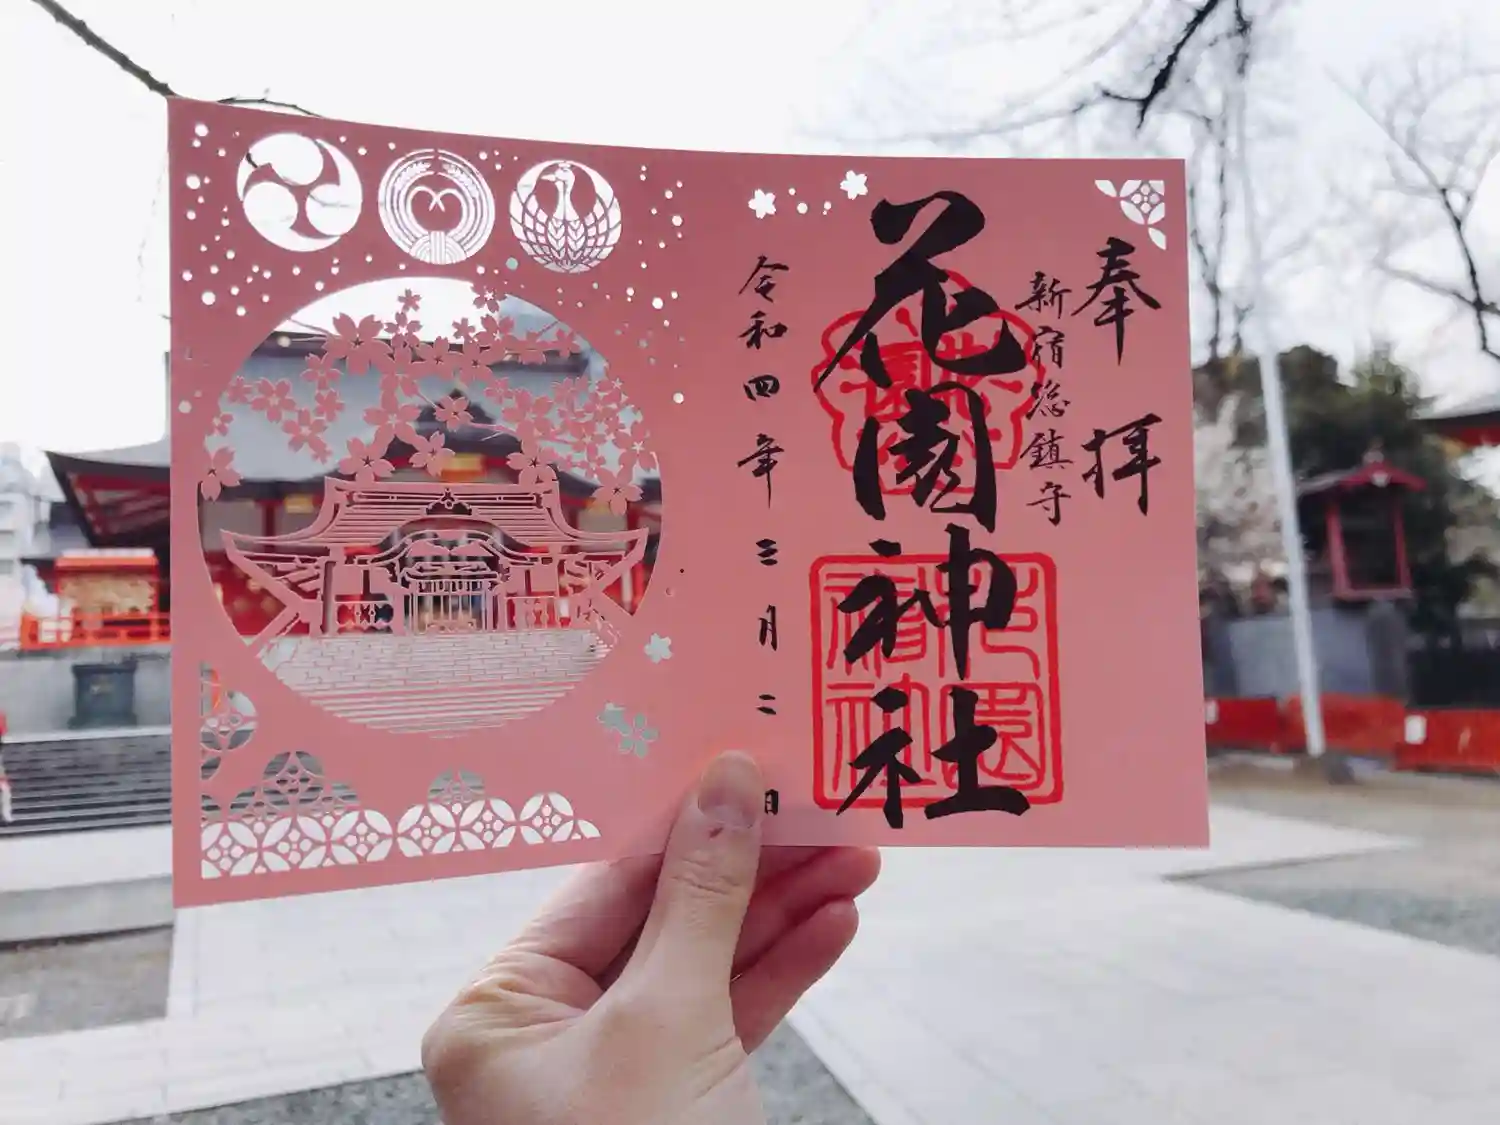 奉拝
新宿総鎮守
花園神社
令和四年三月二日
花園神社